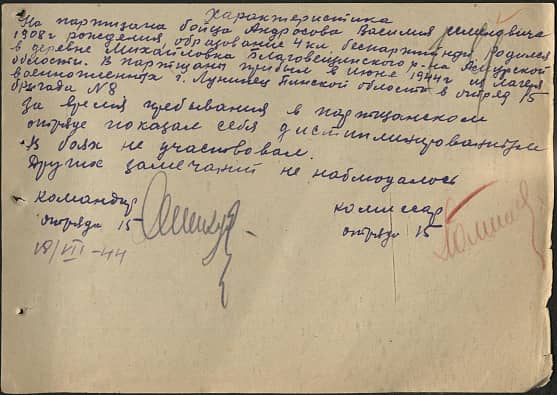 Характеристика
На партизана бойца Андросова Василия Семеновича
1908г рождения, образование 4 кл. беспартийный. Родился
в деревне Михайловка Благовещинского р-на Амурской
области. В партизаны прибыл в июне 1944г из лагеря
военнопленных г. Лунинец Пинской области в отряд 15
бригада N8
За время пребывания в партизанском
отряде показал себя дистиплинированным
В боях не участвовал.
Других замечаний не наблюдалось
командир комиссар
отряда 15 отряда 15
18/VII-44